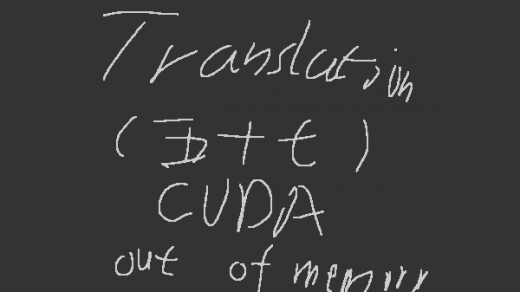 Translation
(五十七)
CUDA
out of memory